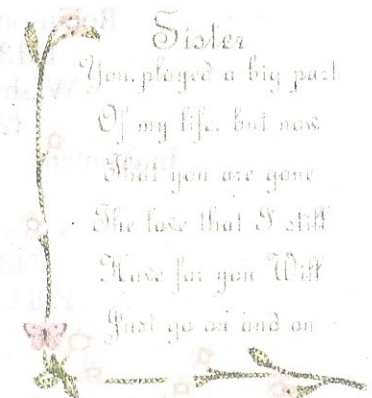 Sister
You played a big part
Of my life, but now
That you are gone
The love that I still
Have for you Will
Just go on and on